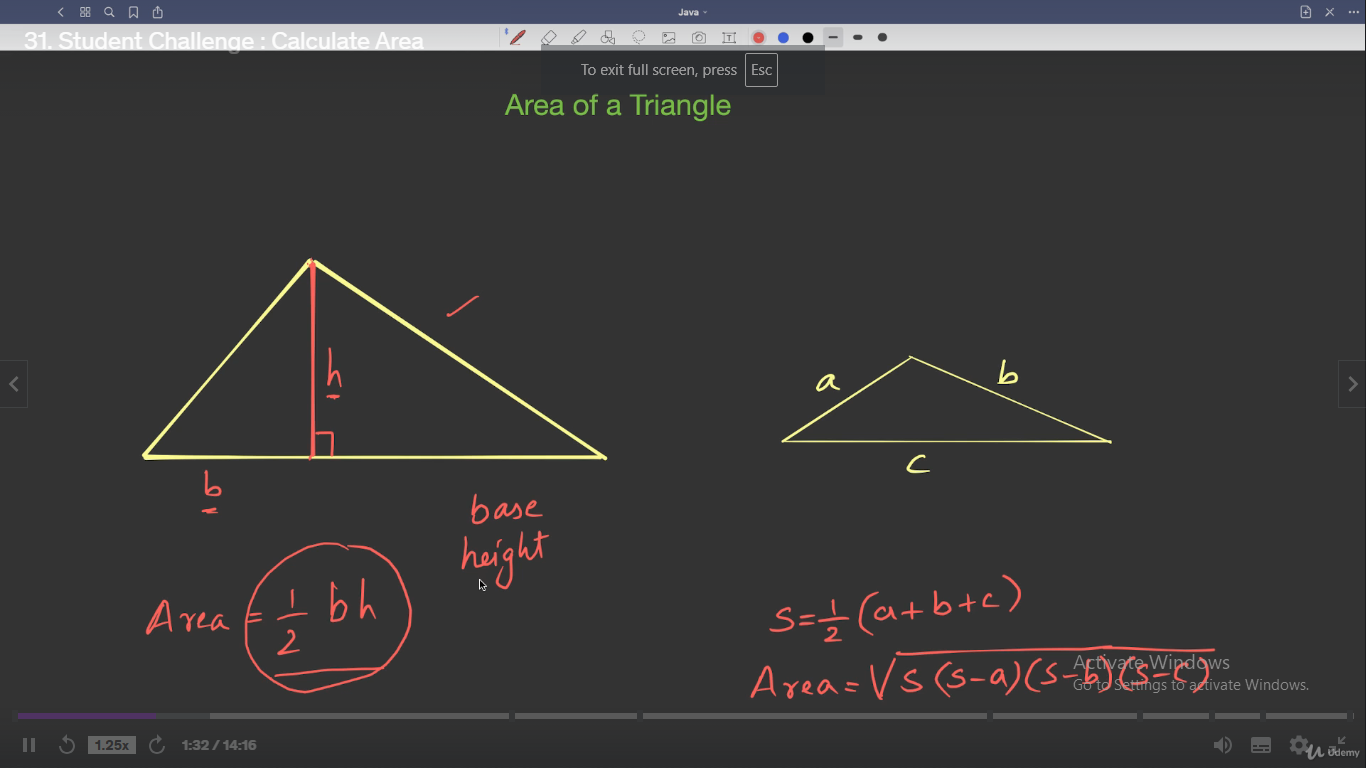 Java
31. Student Challenge : Calculate Area
To exit full screen, press Esc
Area of a Triangle
h
a
b
c
b
base
height
Area = 1/2 bh
S=1/2 (a+b+c)
Area = √S(S-a)(S-b)(S-c)
Activate Windows
Go to Settings to activate Windows.
1.25x
1:32 / 14:16
Udemy